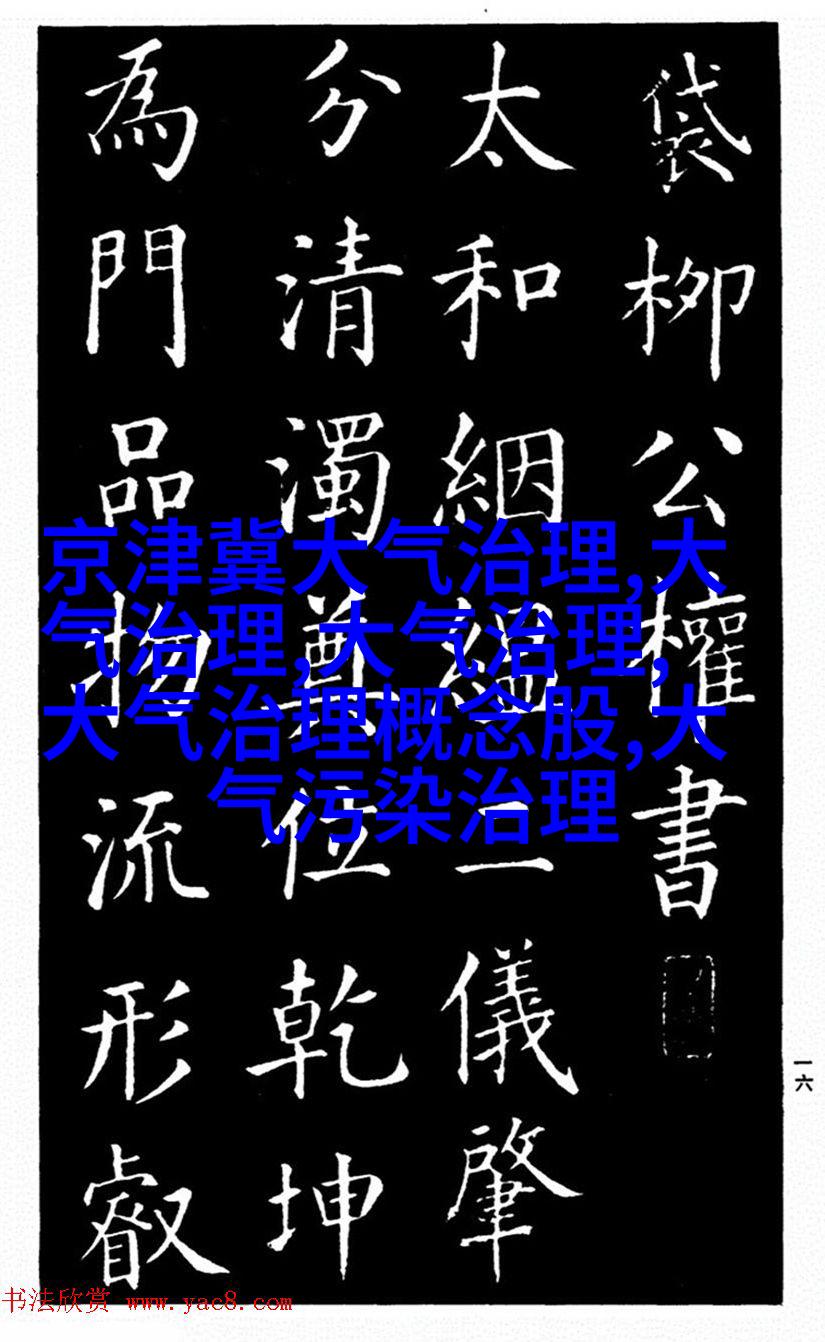 袋柳公權書
太和絪縕二儀肇
分清濁奠位乾坤
為門品物流形叡
京津冀大气治理,大
气治理,大气治理,
大气治理概念股,大
气污染治理
一六
书法欣赏 www.yac8.com